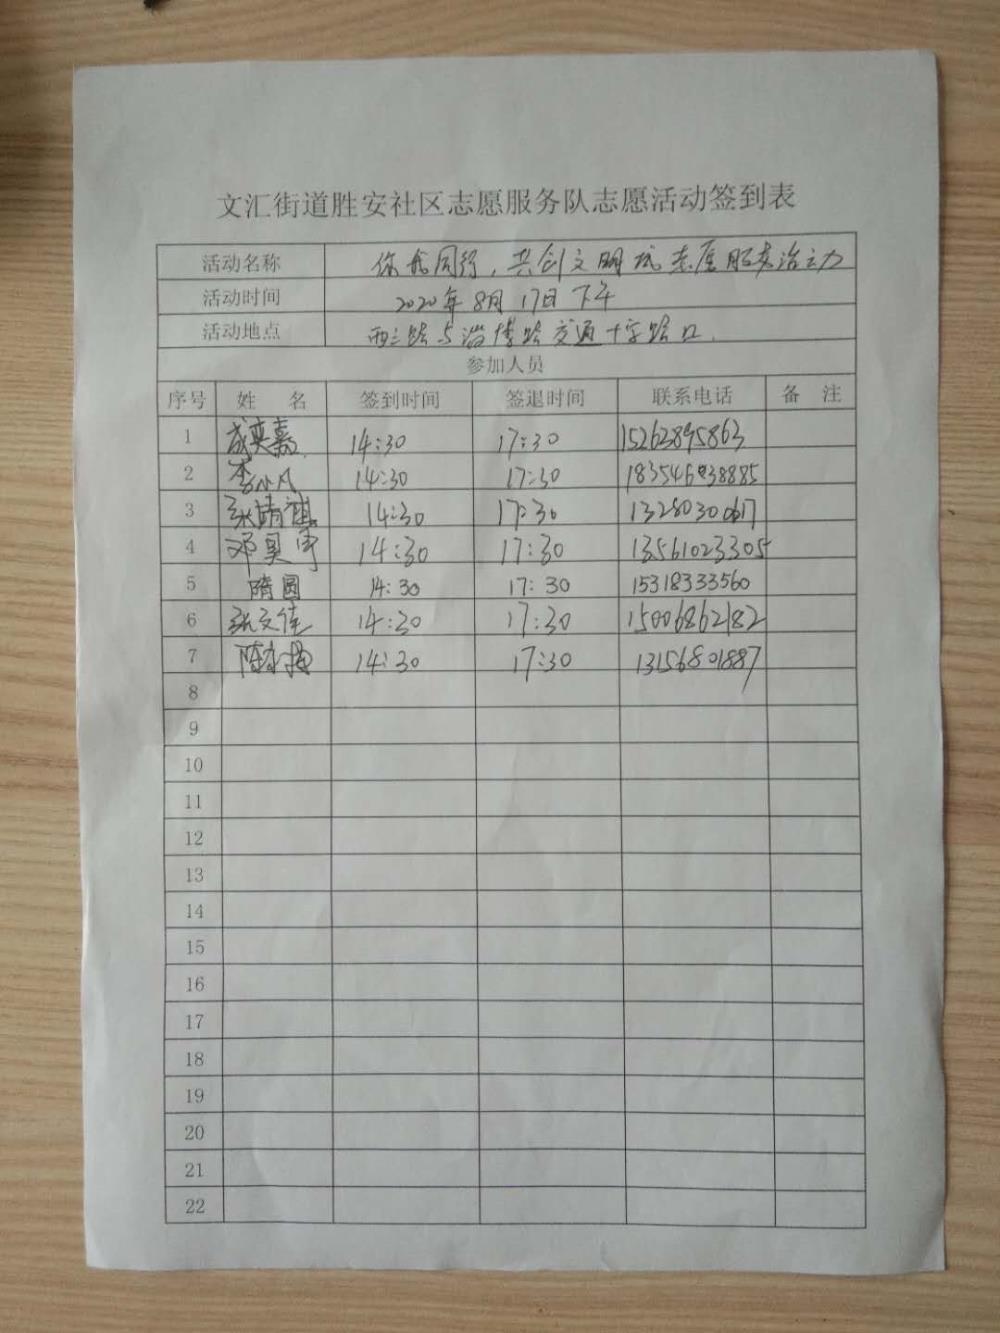 文汇街道胜安社区志愿服务队志愿活动签到表
活动名称 你我同行，共创文明城志愿服务活动
活动时间 2020年8月17日下午
活动地点 西三路与淄博路交通十字路口.
参加人员
序号 姓 名 签到时间 签退时间 联系电话 备 注
1 成奕嘉 14:30 17:30 15263895863
2 李小凡 14:30 17:30 183546938885
3 张靖祺 14:30 17:30
4 邓昊宇 14:30 17:30 13561023305
5 隋圆 14:30 17:30 15318333560
6 张文佳 14:30 17:30 15006862182
7 陈 14:30 17:30 13156801887
8
9
10
11
12
13
14
15
16
17
18
19
20
21
22